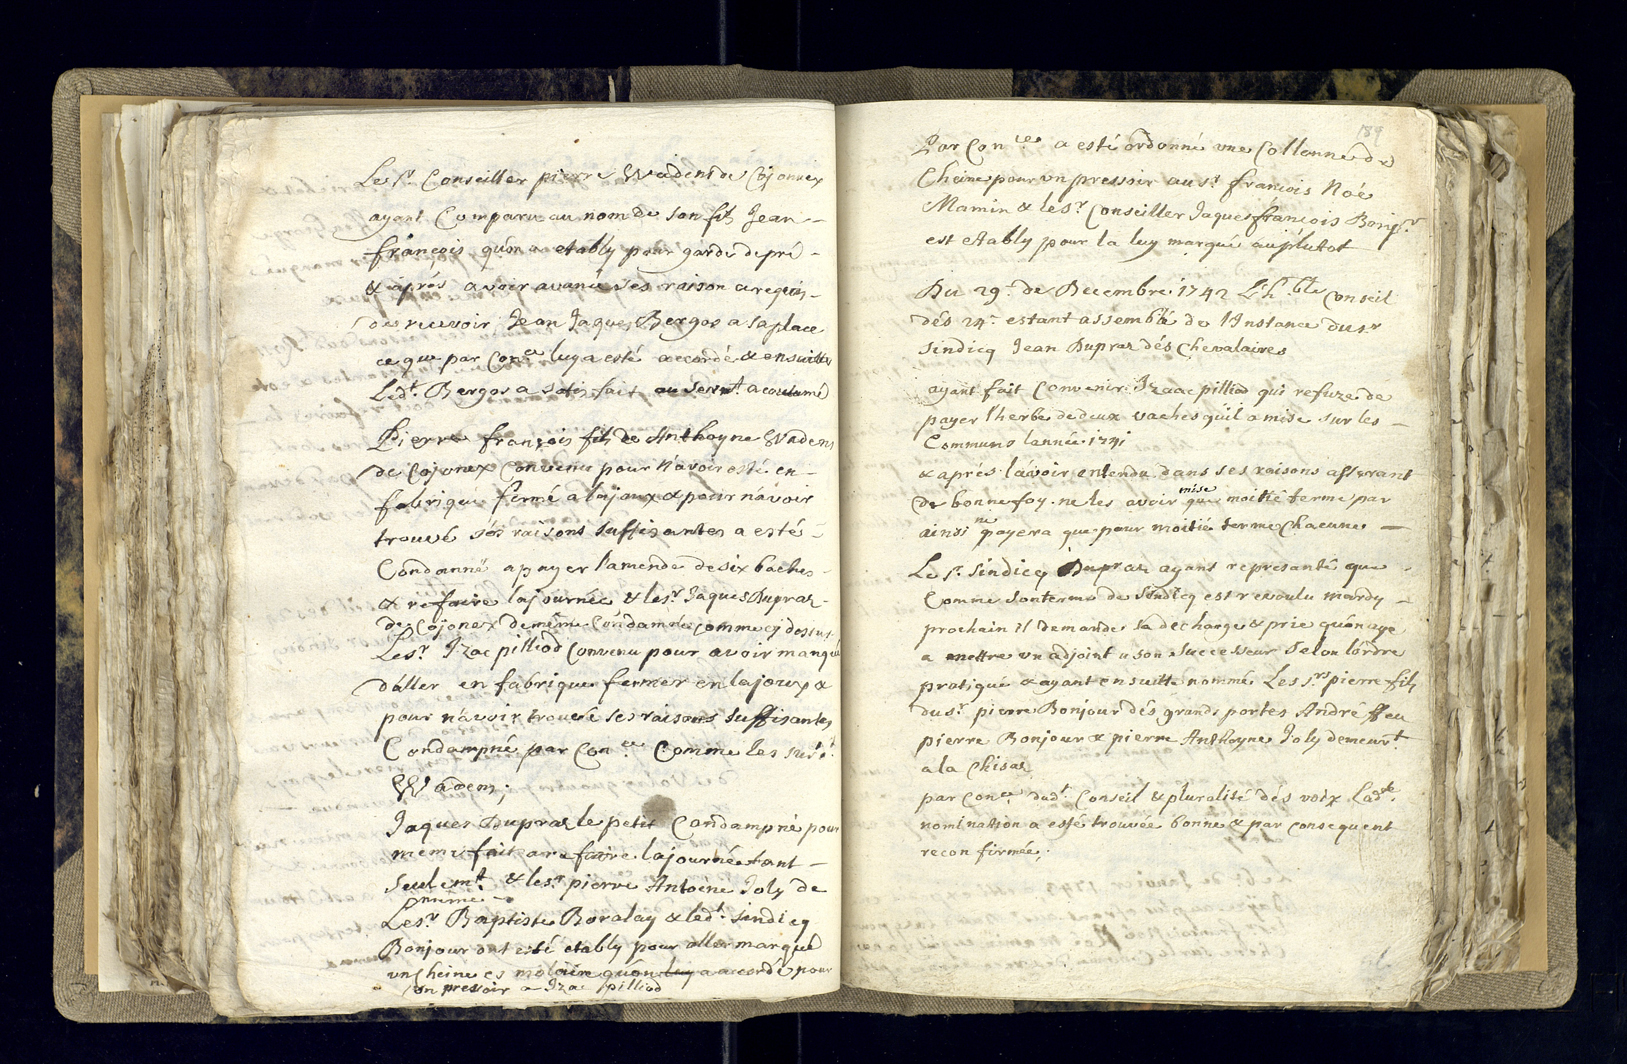 Le Sr. Conseiller pierre Wadens de Cojonnex
ayant Comparu au nom de son fils Jean
françois qu'on a etably pour garde de pré
& âprés avoir avancé ses raison a requis
des recevoir Jean Jaques Bergos a sa place
ce que par Conce luy a esté accordé & ensuitte
Ledt. Bergos a satisfait au sermt. acoutumé
Pierre françois fils de Anthoyne Wadens
de Cojonex Convenu pour n'avoir esté en
fabrique fermé a lajoux & pour n'avoir
trouvé sés raisons suffisantes a esté
Condanné a payer l'amende de six baches
& refaire la journée & le sr. Jaques Dupraz
de Cojonex de même Condamné comme cy dessus
Le sr. Izac pilliod Convenu pour avoir manqué
d'aller en fabrique fermer en lajoux &
pour n'avoir trouvé ses raisons suffisantes
Condampné par Conce Comme les susdt.
Wadens;
Jaques Dupraz le petit Condampné pour
même fait a refaire la journée tant
seulemt. & le sr. pierre Antoine Joly de
même
Le sr. Baptiste Boralay & ledt. sindicq
Bonjour ont esté etably pour aller marqué
un Cheine es molaire qu'on luy a accordé pour
un pressoir a Izac pilliod
189
Par Conce a esté ordonné une Collonne de
Cheines pour un pressoir au sr. francois Noé
Mamin & le sr. Conseiller Jaques françois Bonjr.
est etably pour la luy marqué au plutot
Du 29e. de Decembre 1742 L'h.ble Conseil
dés 24r. estant assemblé de l'Instance du sr.
sindicq Jean Dupraz dés Chevalaires
ayant fait Convenir Izaac pilliod qui refuze de
payer l'herbe de deux vaches qu'il a mise sur les
Communs l'année 1741
& aprés l'avoir entendu dans ses raisons asserant
de bonne foy ne les avoir mise que moitié terme par
ainsi ne payera que pour moitié terme Chacune
Le sr. sindicq Dupraz ayant representé que
Comme son terme de sindicq est revoulu mardy
prochain il demande sa decharge & prie qu'on aye
a mettre un adjoint a son successeur selon lordre
pratiqué & ayant ensuitte nommé Les srs pierre fils
du sr. pierre Bonjour dés grands portes André ffeu
pierre Bonjour & pierre Anthoyne Joly demeurt.
a la Chisaz
par Conce. dudt. Conseil & pluralité dés voix Ladte.
nomination a esté trouvée bonne & par consequent
reconfirmée;